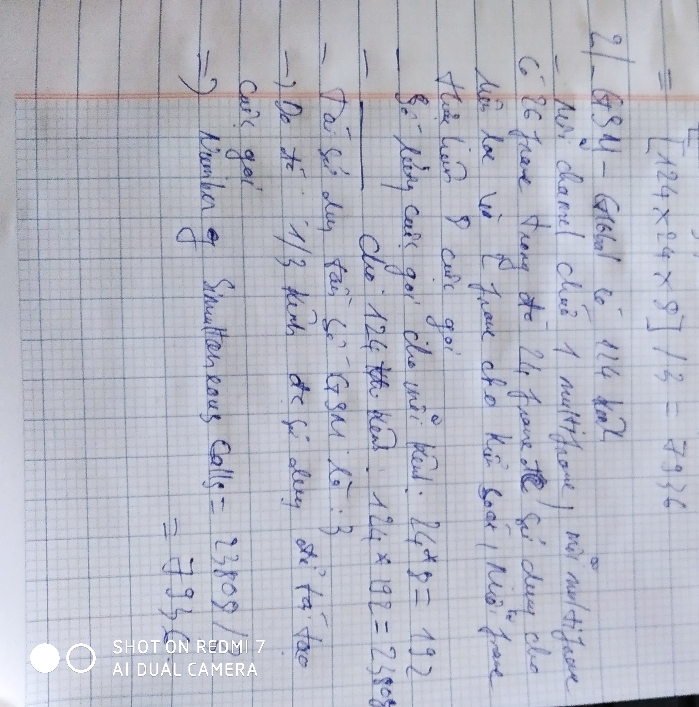 = [124 x 24 x 8] / 3 = 7936
2/ GSM - có 124 kênh
- Mỗi channel 1 multiframe, mỗi multiframe
có 26 frame trong đó 24 frame sử dụng cho
frame cho kiểm soát, mỗi frame
8 cuộc gọi
- Số lượng cuộc gọi cho mỗi kênh: 24 x 8 = 192
- cho 124 kênh: 124 x 192 = 23808
- Tái sử dụng tần số GSM là: 3
-> Do đó 1/3 kênh đc sử dụng để tái tạo
cuộc gọi
=> Number of Simultaneous Calls = 23808 /
= 7936
SHOT ON REDMI 7
AI DUAL CAMERA